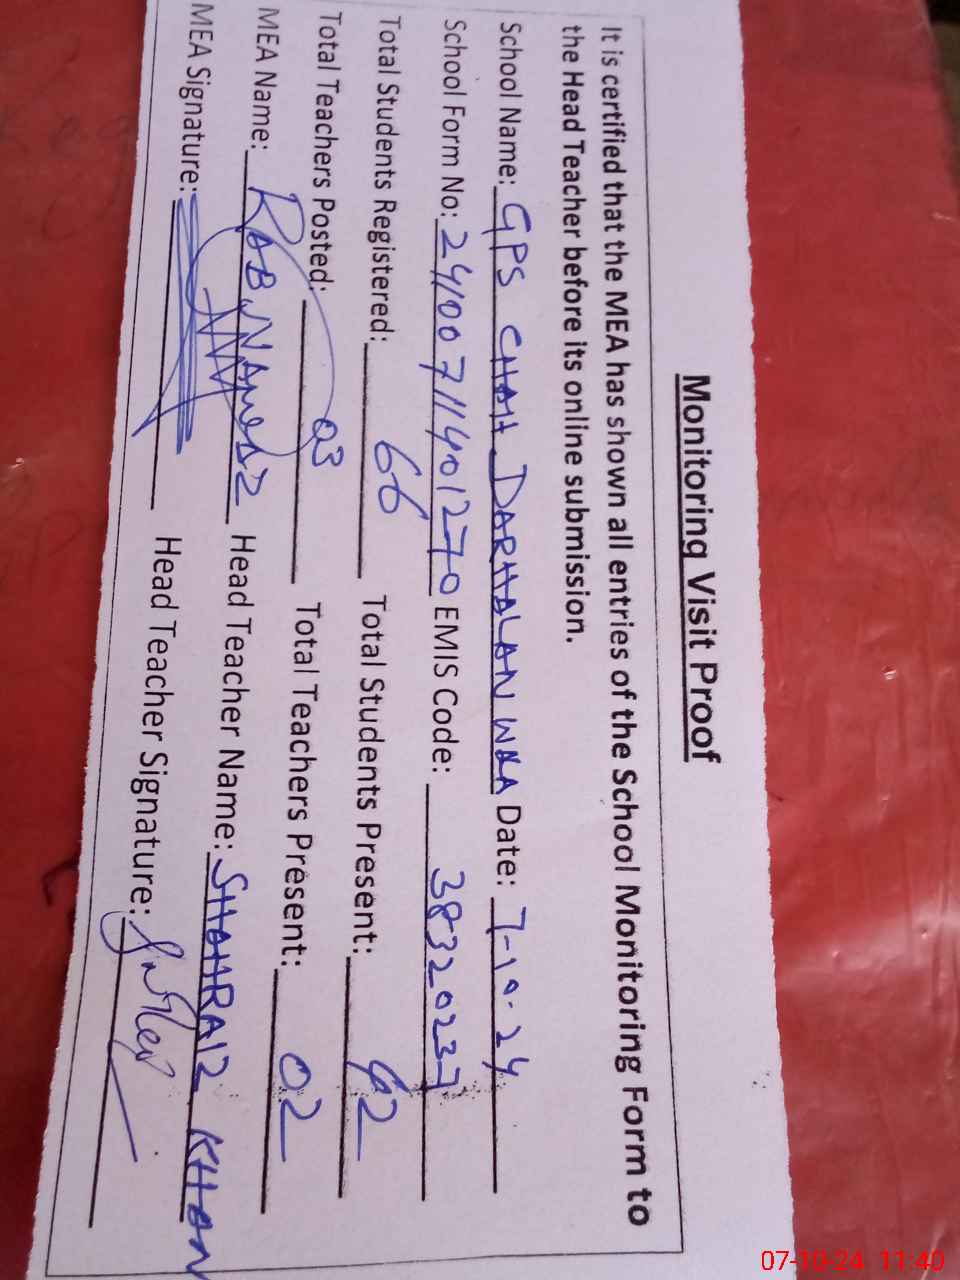 Monitoring Visit Proof
It is certified that the MEA has shown all entries of the School Monitoring Form to
the Head Teacher before its online submission.
School Name: GPS CHAH DARHALAN WALA Date: 7-10-24
School Form No: 24100711401270 EMIS Code: 38320237
Total Students Registered: 66 Total Students Present: 62
Total Teachers Posted: 03 Total Teachers Present: 02
MEA Name: RAB NAWAZ Head Teacher Name: SHAHRAIZ KHAN
MEA Signature: Head Teacher Signature:
07-10-24 11:40